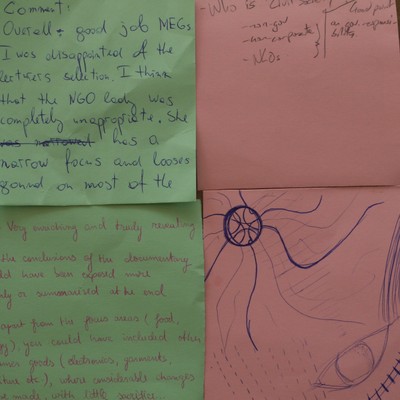 Comment:
Overall + good job MEGs
I was disappointed of the
lecturers selection. I think
that the NGO lady was
completely unappropriate. She
was narrowed has a
narrow focus and looses
gound on most of the
- Who is
- non-gov
- non-corporate
- NGOs
Very enriching and truly revealing
the conclusions of the documentary
have been exposed more
or summarised at the end
apart from the focus areas (food,
you could have included other
goods (electronics, garments,
etc.), where considerable changes
made, with little sacrifice...